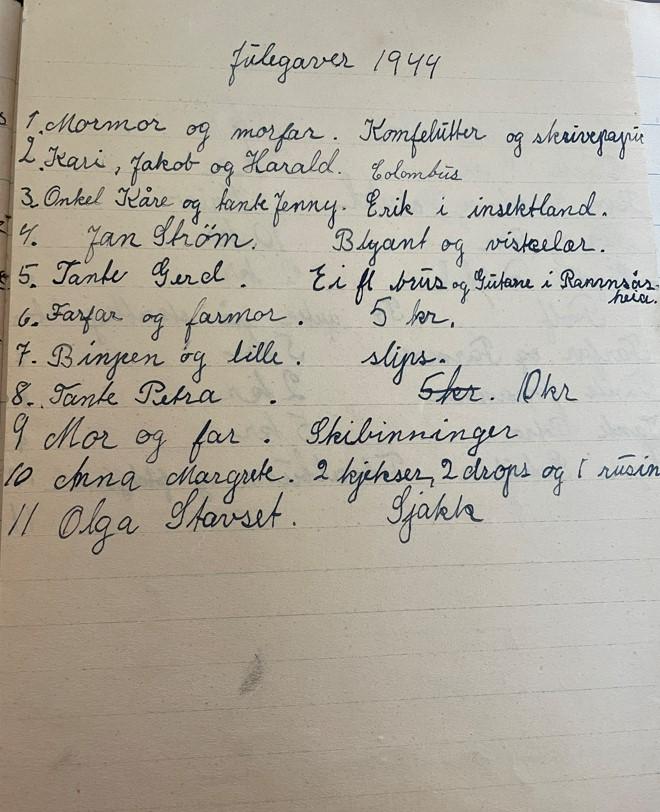 Julegaver 1944
1. Mormor og morfar. Komfelutter og skrivepapir
2. Kari, Jakob og Harald. Colombus
3. Onkel Kåre og tante Jenny. Erik i insektland.
4. Jan Strøm. Blyant og viskelær.
5. Tante Gerd. Ei fl brus og Gutane i Ramnsås-
heia.
6. Farfar og farmor. 5 kr.
7. og lille. slips.
8. Tante Petra. 5kr. 10kr
9 Mor og far. Skibinninger
10 Anna Margrete. 2 kjekser, 2 drops og 1 rusin
11 Olga Stavset. Sjakk